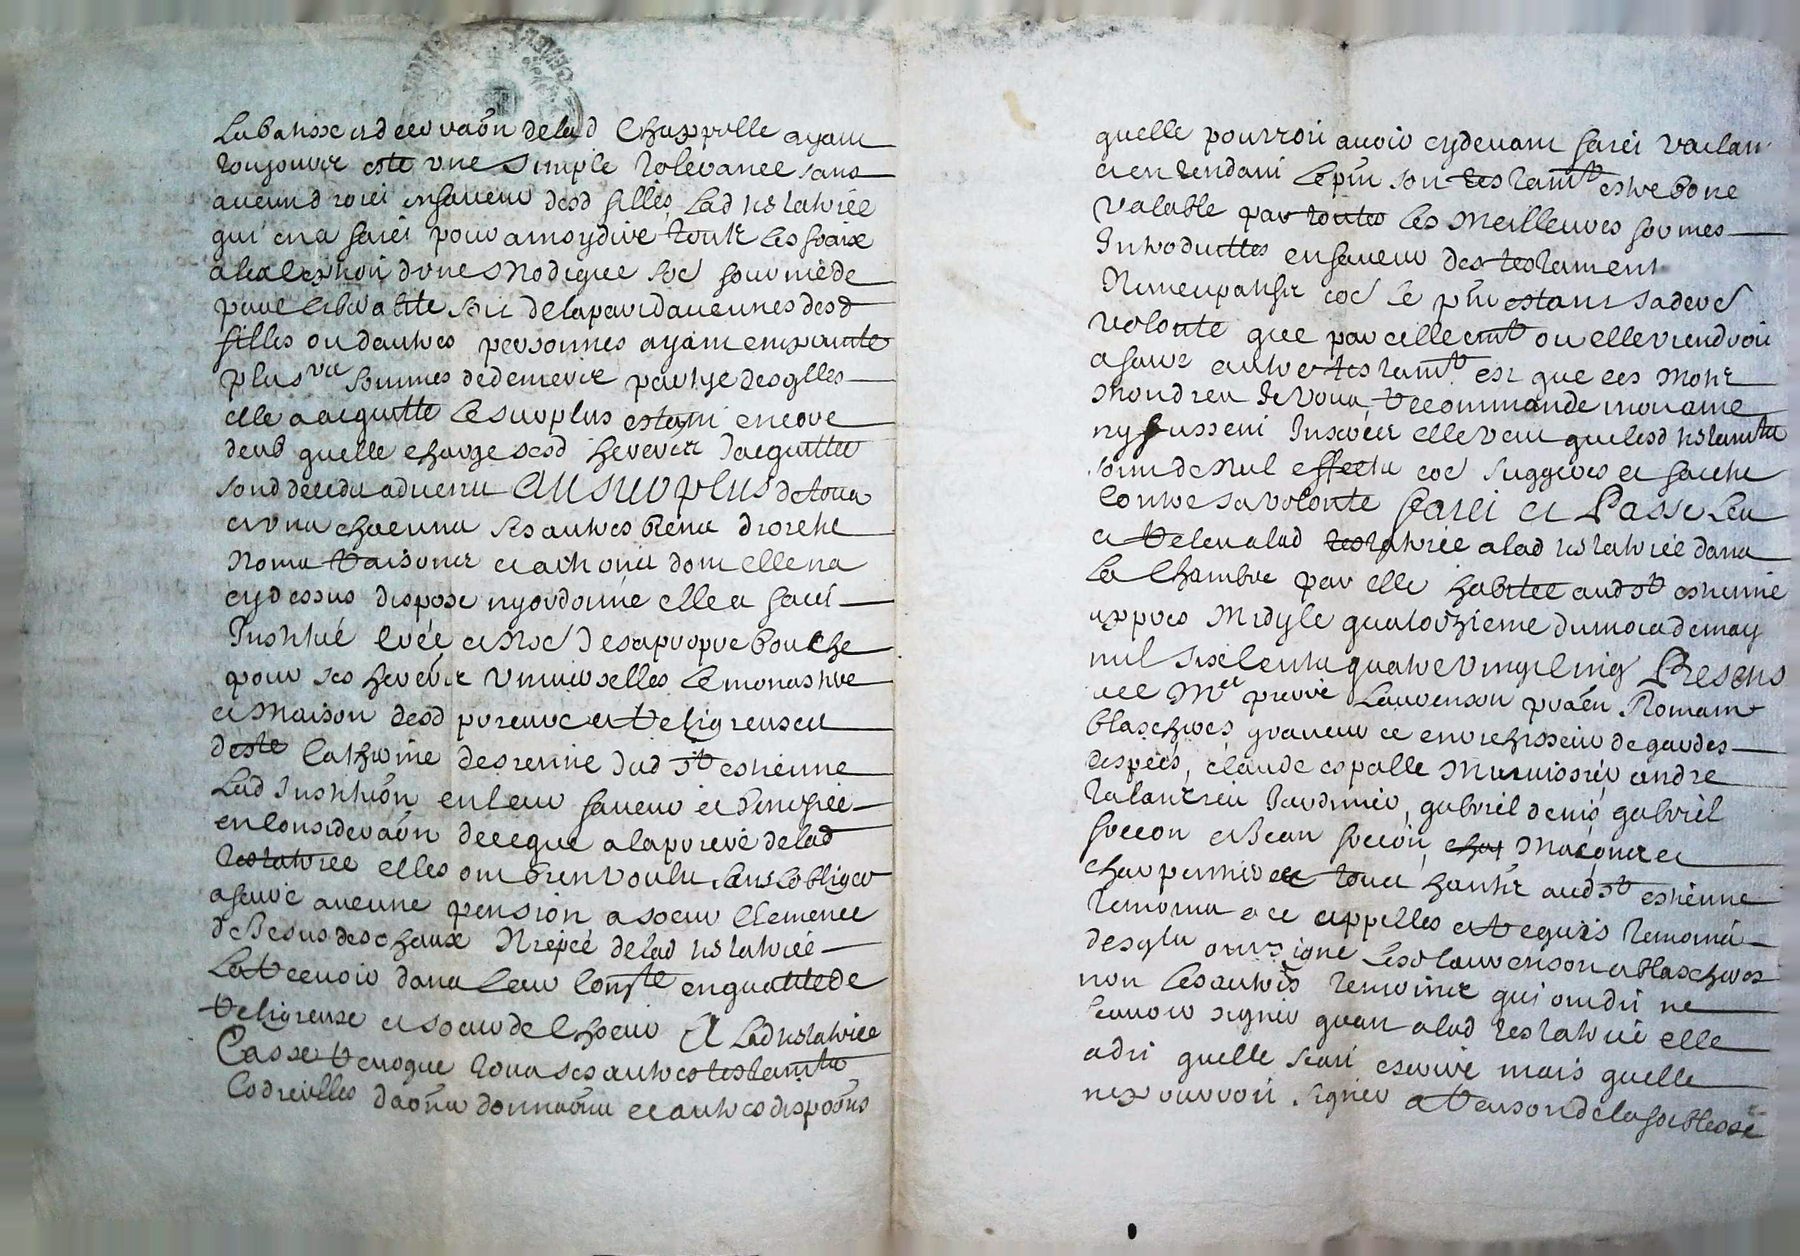 La batisse et decoraõn de lad Chappelle ayant
tousjours esté une simple tolerance sans
aucun droict en faveur desd filles Lad testatrice
qui en a faict pour a moydire toute les fraix
a lexception dune modique soe fournie de
pure liberalité soit de la part daucunes desd
filles ou dautres personnes ayant emprunte
plusrs sommes de deniers partye desqlles
elle a acquitté le surplus estant encore
deub quelle charge sesd heretiers dacquitter
sond deceds advenu Au surplus de tous
et uns chacuns ses autres biens droicts
noms raisons et actions dont elle na
cy dessus disposé ny ordonné elle a faict
Institué créé et no⁠é de sa propre bouche
pour ses heretiers universelles le monastere
et maison desd prieure et religieuses
de ste Catherine dessenne dud st estienne
Lad Institution en leur faveur et
en consideraõn de ce que a la priere de lad
testatrice elles ont bien voulu sans lobliger
a faire aucune pension a soeur Clemence
de Jesus deschaux niepce de lad testatrice
La recevoir dans leur Conste en qualité de
religieuse et soeur de Choeur Et Lad testatrice
Casse revoque tous ses autres testamts
Codicilles daõns donnaõns et autres disposõns
quelle pourroit avoir cy devant faict vaclan
et en rendant le pnt son testamt estre bon et
valable par toutes les meilleures formes
Introduittes en faveur des testament
Nuncupatifs coe le pnt estant sa dere
volonté que par icelle ou elle viendroit
a faire autre testamt est que ces mots
mon dieu je vous recommande mon ame
ny fussent Inserés elle veut que lesd testamts
soint de nul effects coe suggerés et faicts
Contre sa volonté Faict et Passé Leu
et releu a lad testatrice a lad testatrice dans
La Chambre par elle habitée aud st estienne
appres midy le quatorzieme du mois de may
mil sixcents quatre vingt cinq Presens
Me pierre Laurenson praẽn Romain
blachires graveur et enrichisseur de gardes
despées, claude espalle menuissier, andre
Jardinier, gabriel denis, gabriel
foccon et Jean foccon, char maçons et
charpentiers tous habits aud st estienne
temoins a ce appelles et requis temoins
desqls ont signé lesd laurenson et blachires
non les autres temoins qui ont dit ne
scavoir signer quant a lad testatrice elle
a dit quelle scait escrire mais quelle
ne pouvoit signer a raison de la foiblesse